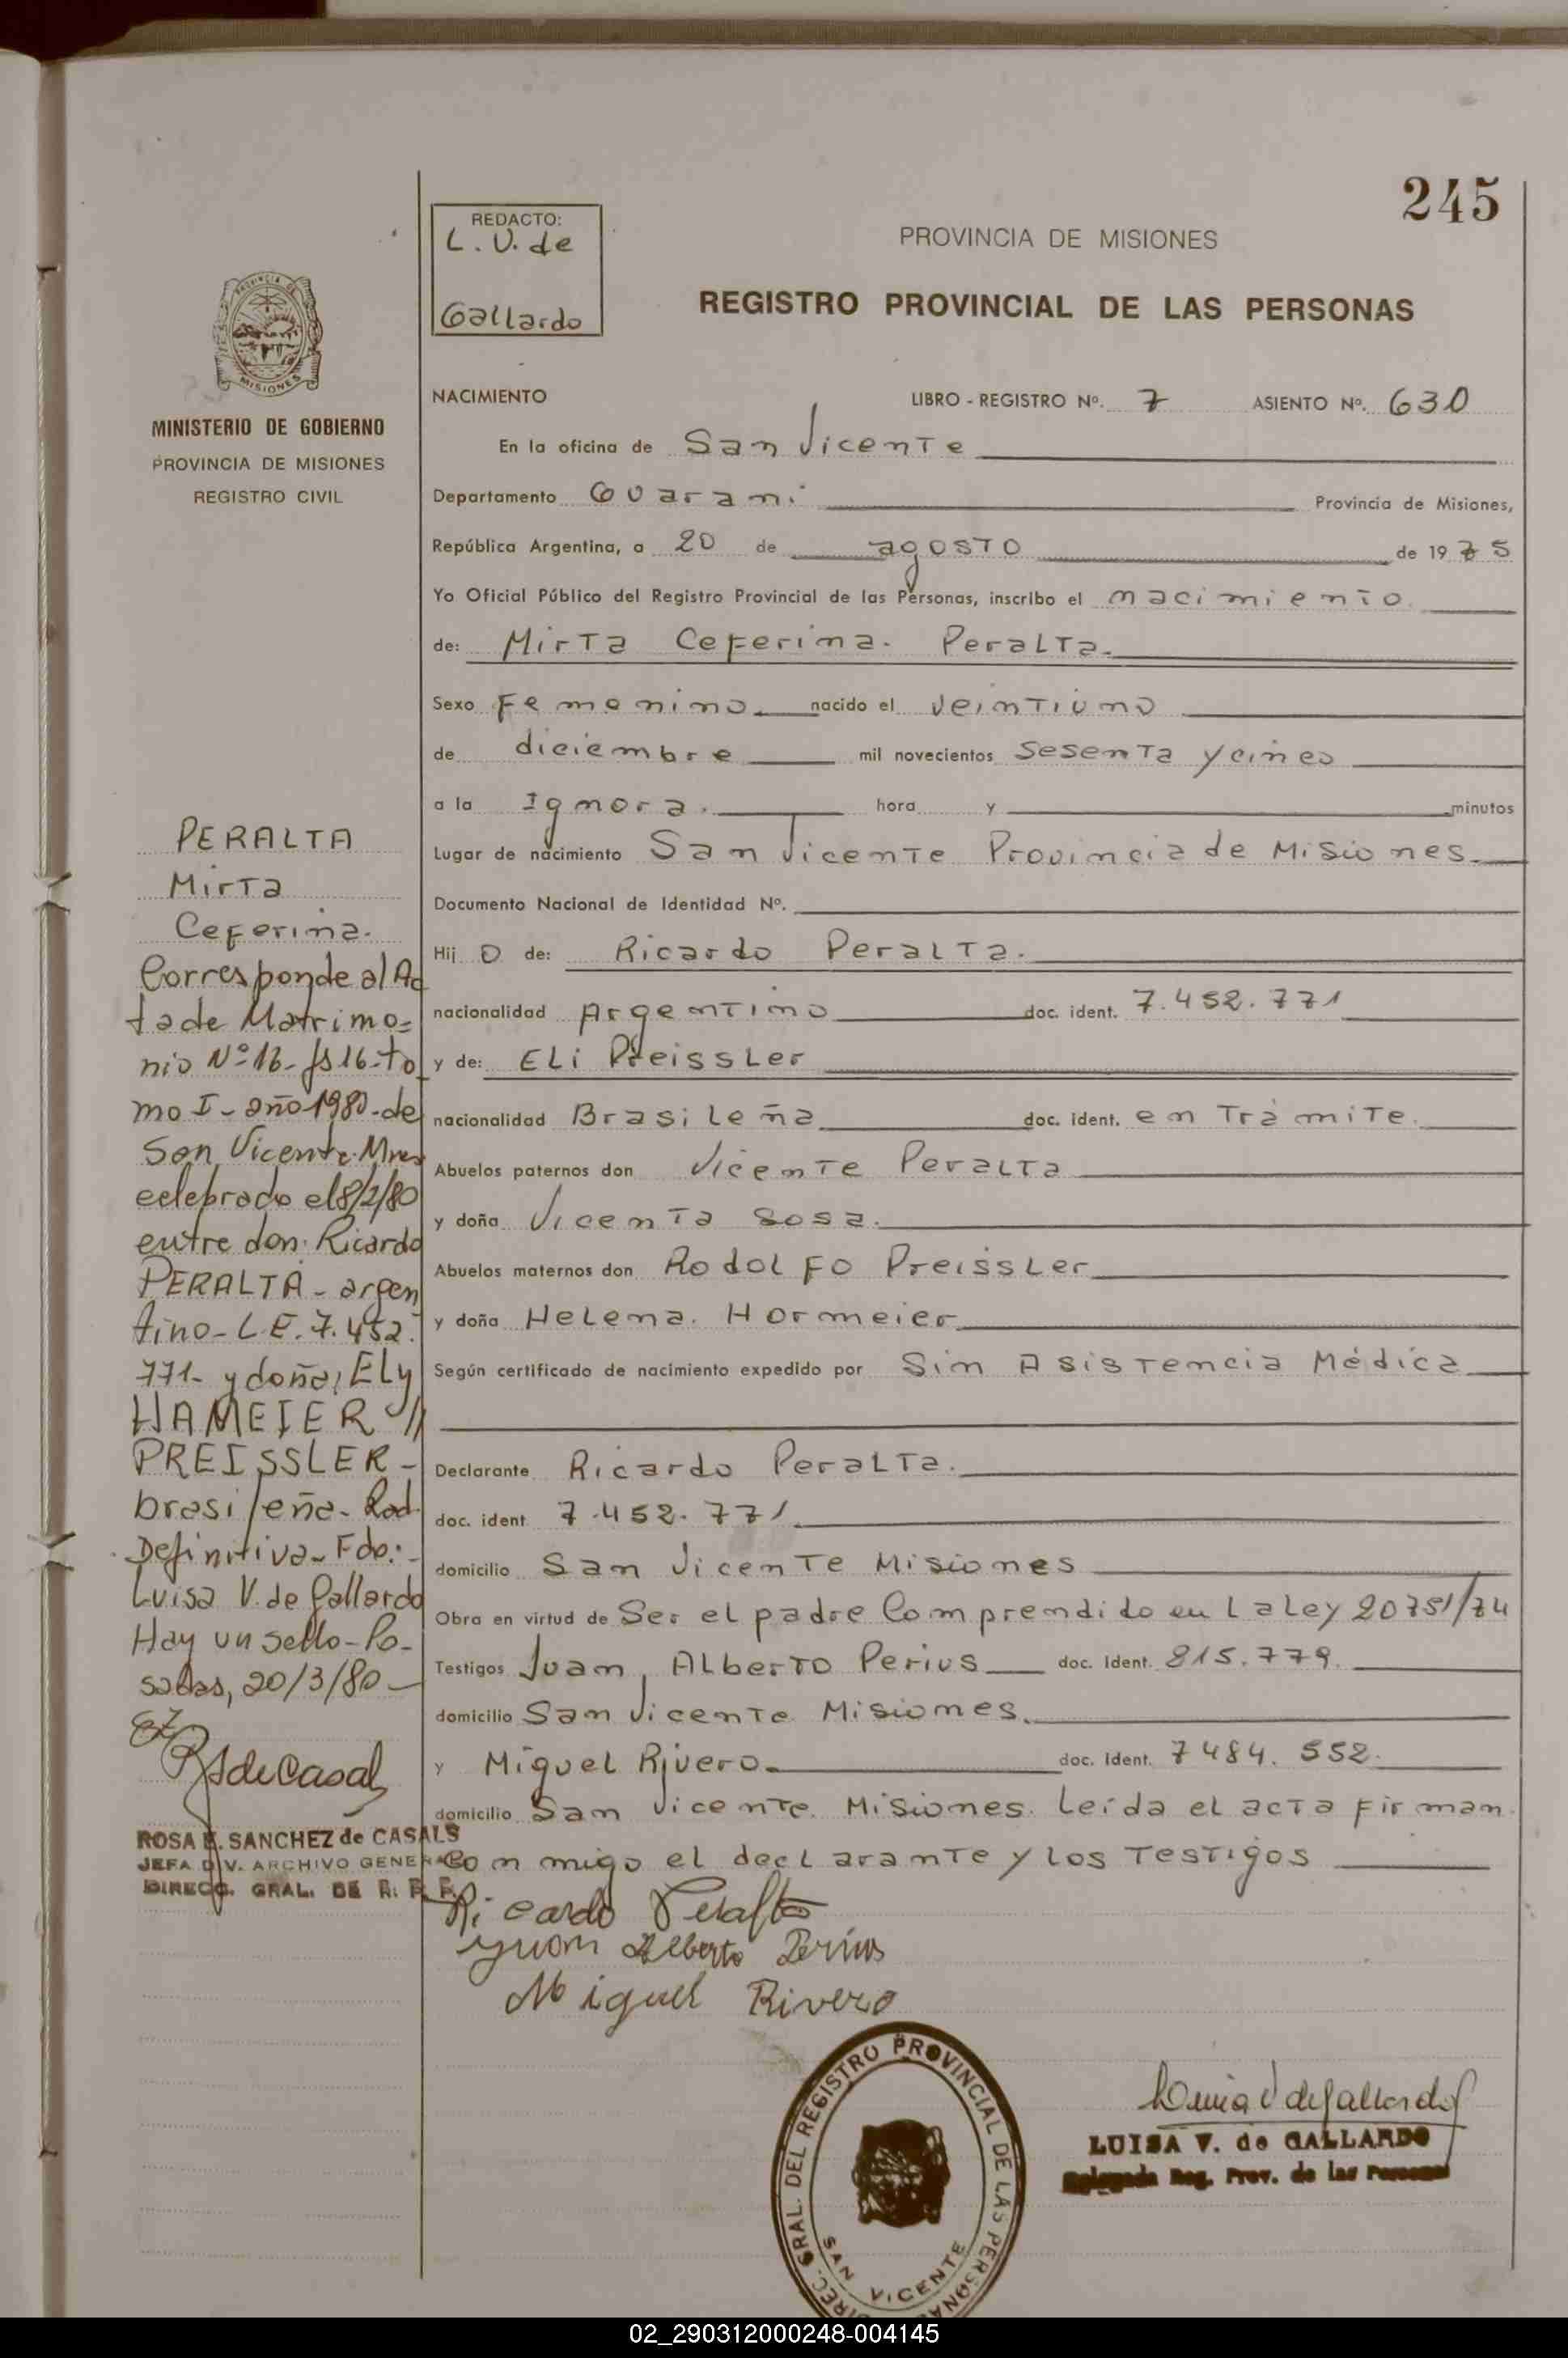 245
REDACTO:
L. V. de
Gallardo
PROVINCIA DE MISIONES
REGISTRO PROVINCIAL DE LAS PERSONAS
PROVINCIA DE
MISIONES
MINISTERIO DE GOBIERNO
PROVINCIA DE MISIONES
REGISTRO CIVIL
NACIMIENTO LIBRO - REGISTRO Nº. 7 ASIENTO Nº. 630
En la oficina de San Vicente
Departamento Guarani Provincia de Misiones,
República Argentina, a 20 de agosto de 1975
Yo Oficial Público del Registro Provincial de las Personas, inscribo el nacimiento
de: Mirta Ceferina. Peralta.
Sexo Femenino. nacido el veintiuno
de diciembre mil novecientos sesenta y cinco
a la Ignora. hora y minutos
Lugar de nacimiento San Vicente Provincia de Misiones.
Documento Nacional de Identidad Nº.
Hij o de: Ricardo Peralta.
nacionalidad Argentino doc. ident. 7.452.771
y de: Eli Preissler
nacionalidad Brasileña doc. ident. en Trámite.
Abuelos paternos don Vicente Peralta
y doña Vicenta Sosa.
Abuelos maternos don Rodolfo Preissler
y doña Helena. Hormeier
Según certificado de nacimiento expedido por Sin Asistencia Médica
Declarante Ricardo Peralta.
doc. ident. 7.452.771
domicilio San Vicente Misiones
Obra en virtud de Ser el padre Comprendido en La Ley 20751/74
Testigos Juan, Alberto Perius doc. Ident. 815.779.
domicilio San Vicente Misiones.
y Miguel Rivero. doc. Ident. 7484.552.
domicilio San Vicente. Misiones. Leída el acta firman
Con migo el declarante y los Testigos
Ricardo Peralta
Juan Alberto Perius
Miguel Rivero
PERALTA
Mirta
Ceferina.
Corresponde al Ac
ta de Matrimo=
nio Nº 16- fs 16- to
mo I- año 1980- de
San Vicente. Mnes
celebrado el 8/2/80
entre don: Ricardo
PERALTA - argen
tino- L.E. 7.452.
771- y doña, Ely
HAMEIER //
PREISSLER-
brasileña- Rad.
Definitiva- Fdo:-
Luisa V. de Gallardo
Hay un sello- Po-
sadas, 20/3/80-
ROSA E. SANCHEZ de CASALS
JEFA DIV. ARCHIVO GENERAL
DIRECC. GRAL. DE R. P. P.
DIREC. GRAL. DEL REGISTRO PROVINCIAL DE LAS PERSONAS
SAN VICENTE
Luisa V de Gallardo
LUISA V. de GALLARDO
Delegada Reg. Prov. de las Personas
02_290312000248-004145